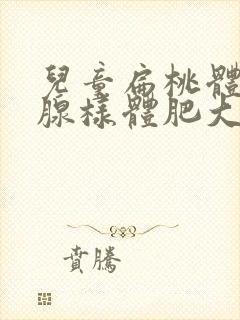 兒童扁桃體
腺樣體肥大
賁騰